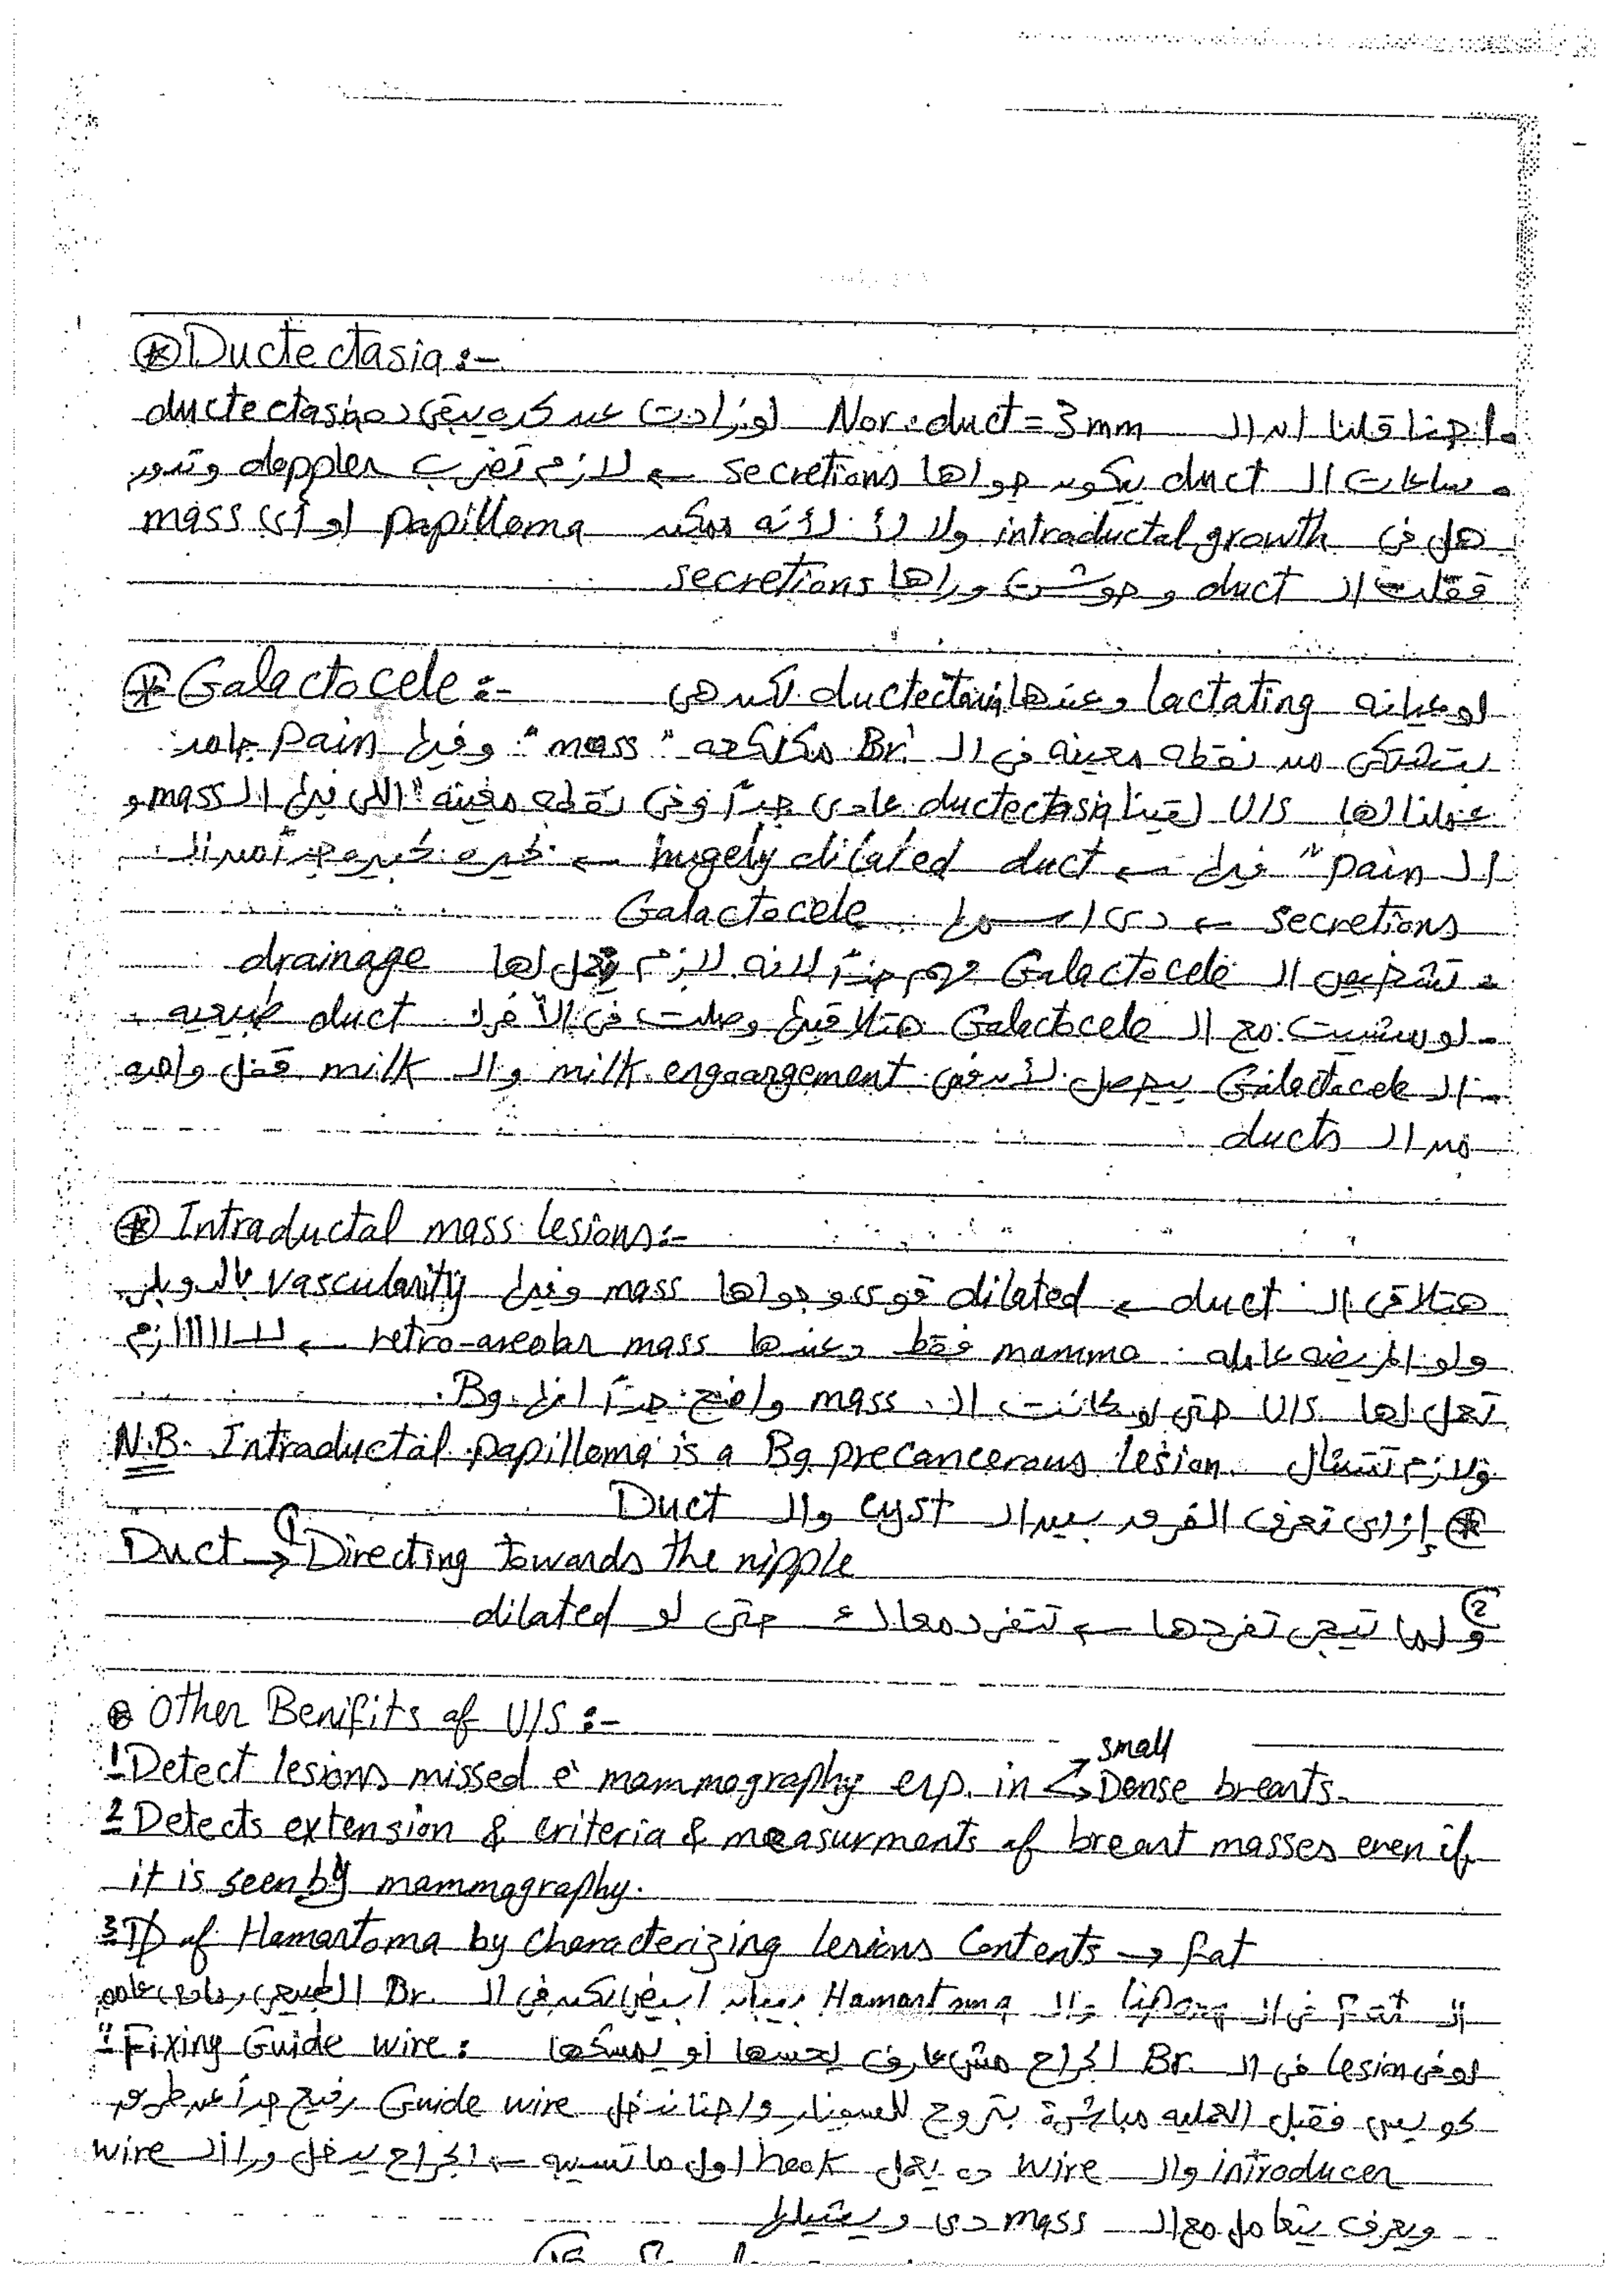 Ductectasia :-
احنا قلنا ان الـ Nor. duct = 3 mm لو زادت عن كده يبقى ده ductectasia
ساعات الـ duct بيكون جواها secretions ← لازم تضرب doppler وتدور
هل فى intraductal growth ولا لأ لأنه ممكن papilloma او أى mass
قفلت الـ duct وحوشت وراها secretions
Galactocele :- لو عيانه lactating وعندها ductectasia لكن هى
بتشتكى من نقطه معينه فى الـ Br. مكلكعه "mass" وفيها Pain جامد
عملنا لها U/S لقينا ductectasia عادى جداً وفى نقطه معينه "اللى فيها الـ mass و
الـ Pain" فيها ← hugely dilated duct ← كبيره جداً من الـ
secretions ← دى اسمها Galactocele
تشخيص الـ Galactocele مهم جداً لانه لازم يتعمل لها drainage
لو مشيت مع الـ Galactocele هتلاقيها وصلت فى الآخر لـ duct طبيعيه
الـ Galactocele بيحصل لأن فى milk engoargement والـ milk قفل واحده
من الـ ducts
Intraductal mass lesions :-
هتلاقى الـ duct ← dilated قوى وجواها mass وفيها vascularity بالدوبلر
ولو المريضه عامله mammo فقط وعندها retro-areolar mass ← لااااااازم
تعمل لها U/S حتى لو كانت الـ mass واضح جداً انها Bg.
N.B. Intraductal papilloma is a Bg precancerous lesion. ولازم تتشال
إزاى تعرف الفرق بين الـ cyst والـ Duct
Duct → ① Directing towards the nipple
② ولما تيجى تفردها ← تتفرد معاك حتى لو dilated
Other Benifits of U/S :-
1 Detect lesions missed è mammography esp. in → small → Dense breasts.
2 Detects extension & criteria & measurments of breast masses even if
it is seen by mammography.
3 D of Hamartoma by characterizing lesions contents → fat
الـ fat فى الـ lipoma والـ Hamartoma بيبان ابيض لكن فى الـ Br. الطبيعى
4 Fixing Guide wire : لو فى lesion فى الـ Br. الجراح مش عارف يحسها أو يمسكها
كويس فقبل العمليه مباشرة بتروح للسونار واحنا ندخل Guide wire رفيع جداً عن طريق
introducer والـ wire ده يعمل hook اول ما تسيبه ← الجراح يدخل ورا الـ wire
ويعرف يتعامل مع الـ mass دى ويشيلها